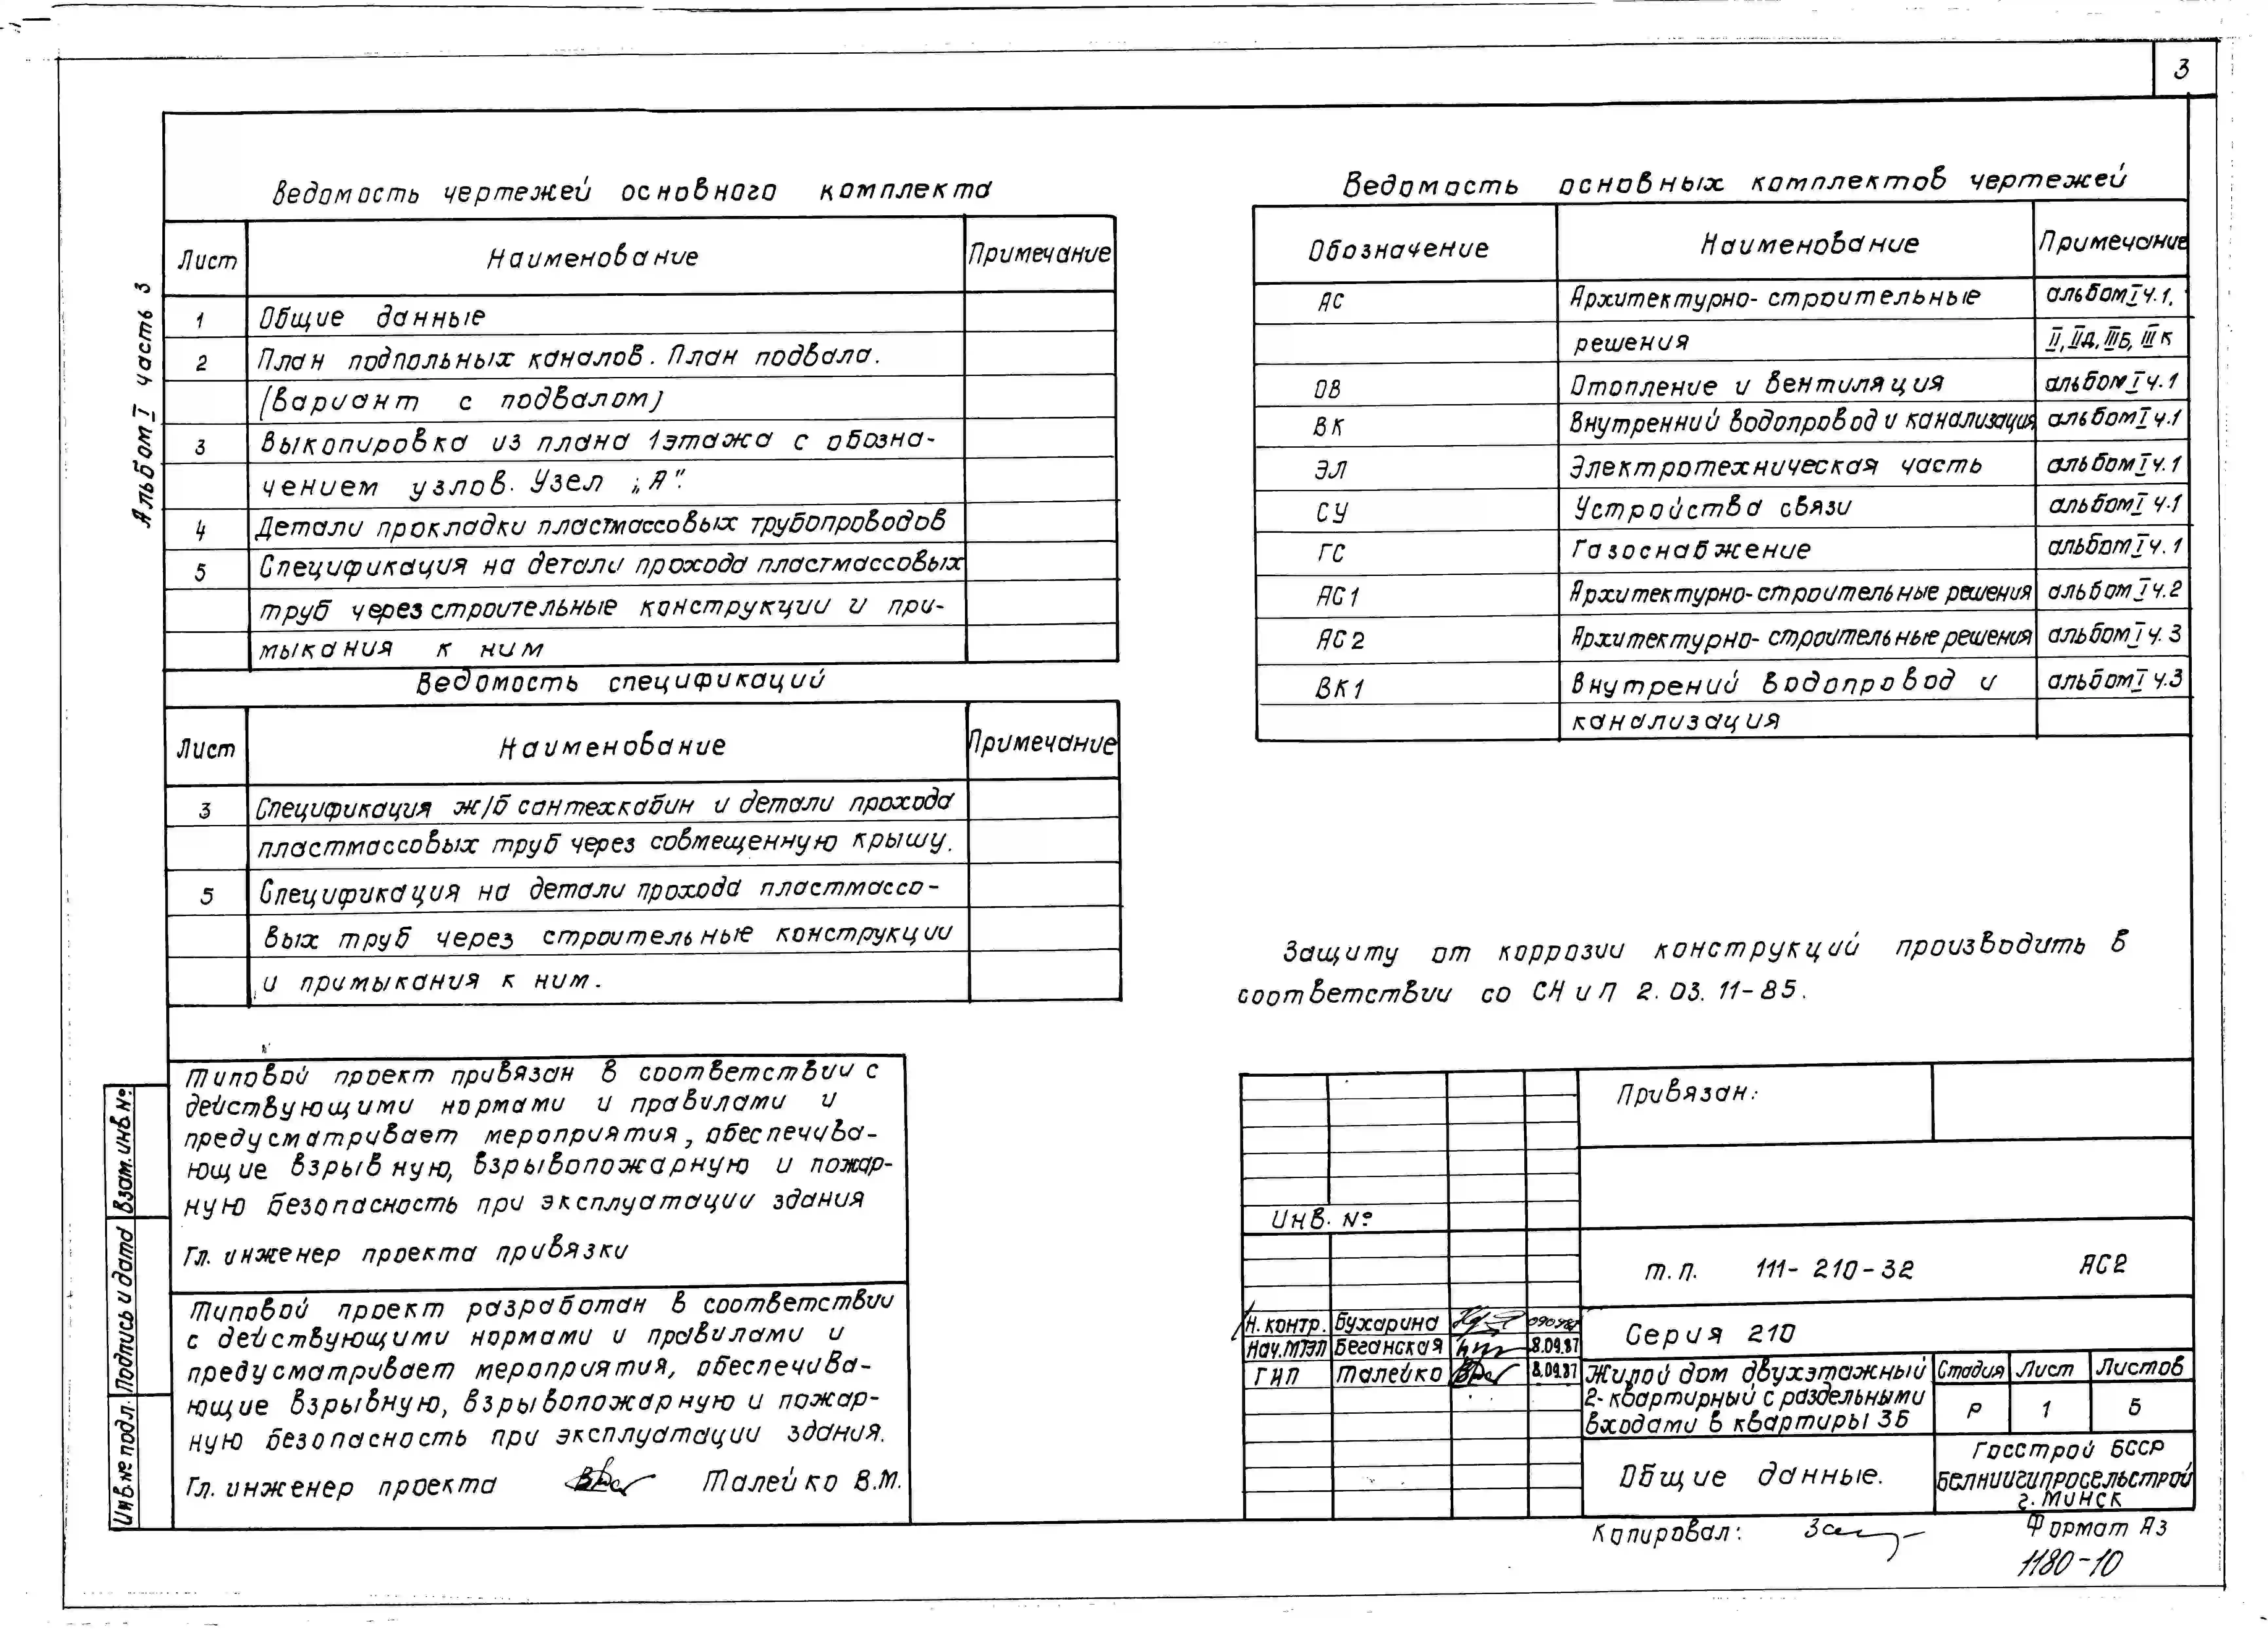 3
Альбом I часть 3
Ведомость чертежей основного комплекта
Лист Наименование Примечание
1 Общие данные
2 План подпольных каналов. План подвала.
(вариант с подвалом)
3 Выкопировка из плана 1 этажа с обозна-
чением узлов. Узел „А".
4 Детали прокладки пластмассовых трубопроводов
5 Спецификация на детали прохода пластмассовых
труб через строительные конструкции и при-
мыкания к ним
Ведомость спецификаций
Лист Наименование Примечание
3 Спецификация ж/б сантехкабин и детали прохода
пластмассовых труб через совмещенную крышу.
5 Спецификация на детали прохода пластмассо-
вых труб через строительные конструкции
и примыкания к ним.
Типовой проект привязан в соответствии с
действующими нормами и правилами и
предусматривает мероприятия, обеспечива-
ющие взрывную, взрывопожарную и пожар-
ную безопасность при эксплуатации здания
Гл. инженер проекта привязки
Типовой проект разработан в соответствии
с действующими нормами и правилами и
предусматривает мероприятия, обеспечива-
ющие взрывную, взрывопожарную и пожар-
ную безопасность при эксплуатации здания.
Гл. инженер проекта Талейко В.М.
Взам. инв. №
Подпись и дата
Инв. № подл.
Ведомость основных комплектов чертежей
Обозначение Наименование Примечание
АС Архитектурно-строительные альбом I ч.1,
решения II, IIД, IIIБ, III К
ОВ Отопление и вентиляция альбом I ч.1
ВК Внутренний водопровод и канализация альбом I ч.1
ЭЛ Электротехническая часть альбом I ч.1
СУ Устройства связи альбом I ч.1
ГС Газоснабжение альбом I ч.1
АС1 Архитектурно-строительные решения альбом I ч.2
АС2 Архитектурно-строительные решения альбом I ч.3
ВК1 Внутрений водопровод и альбом I ч.3
канализация
Защиту от коррозии конструкций производить в
соответствии со СНиП 2.03.11-85.
Привязан:
Инв. №
т.п. 111-210-32 АС2
Н. контр. Бухарина
Нач.МТЭП Беганская 8.09.87
ГИП Талейко 8.09.87
Серия 210
Жилой дом двухэтажный
2-квартирный с раздельными
входами в квартиры 3Б
Стадия Лист Листов
Р 1 5
Общие данные.
Госстрой БССР
Белниигипросельстрой
г. Минск
Копировал:
Формат А3
1180-10